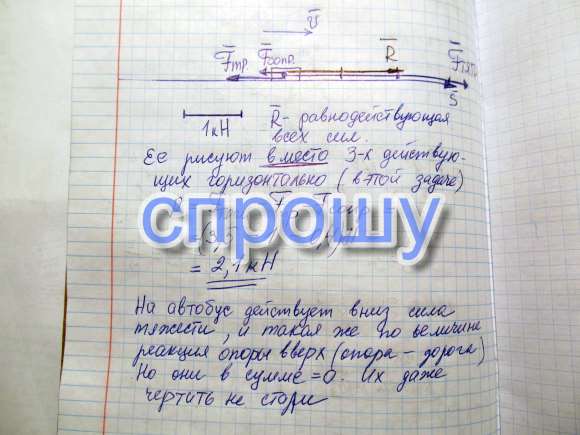 v̅
F̅тр. F̅сопр. R̅ F̅тяги
S̅
1кН
R̅ - равнодействующая
всех сил.
Ее рисуют вместо 3-х действую-
щих горизонтально (в этой задаче)
спрошу
= 2,1 кН
На автобус действует вниз сила
тяжести, и такая же по величине
реакция опоры вверх (опора - дорога)
Но они в сумме = 0. Их даже
чертить не стали